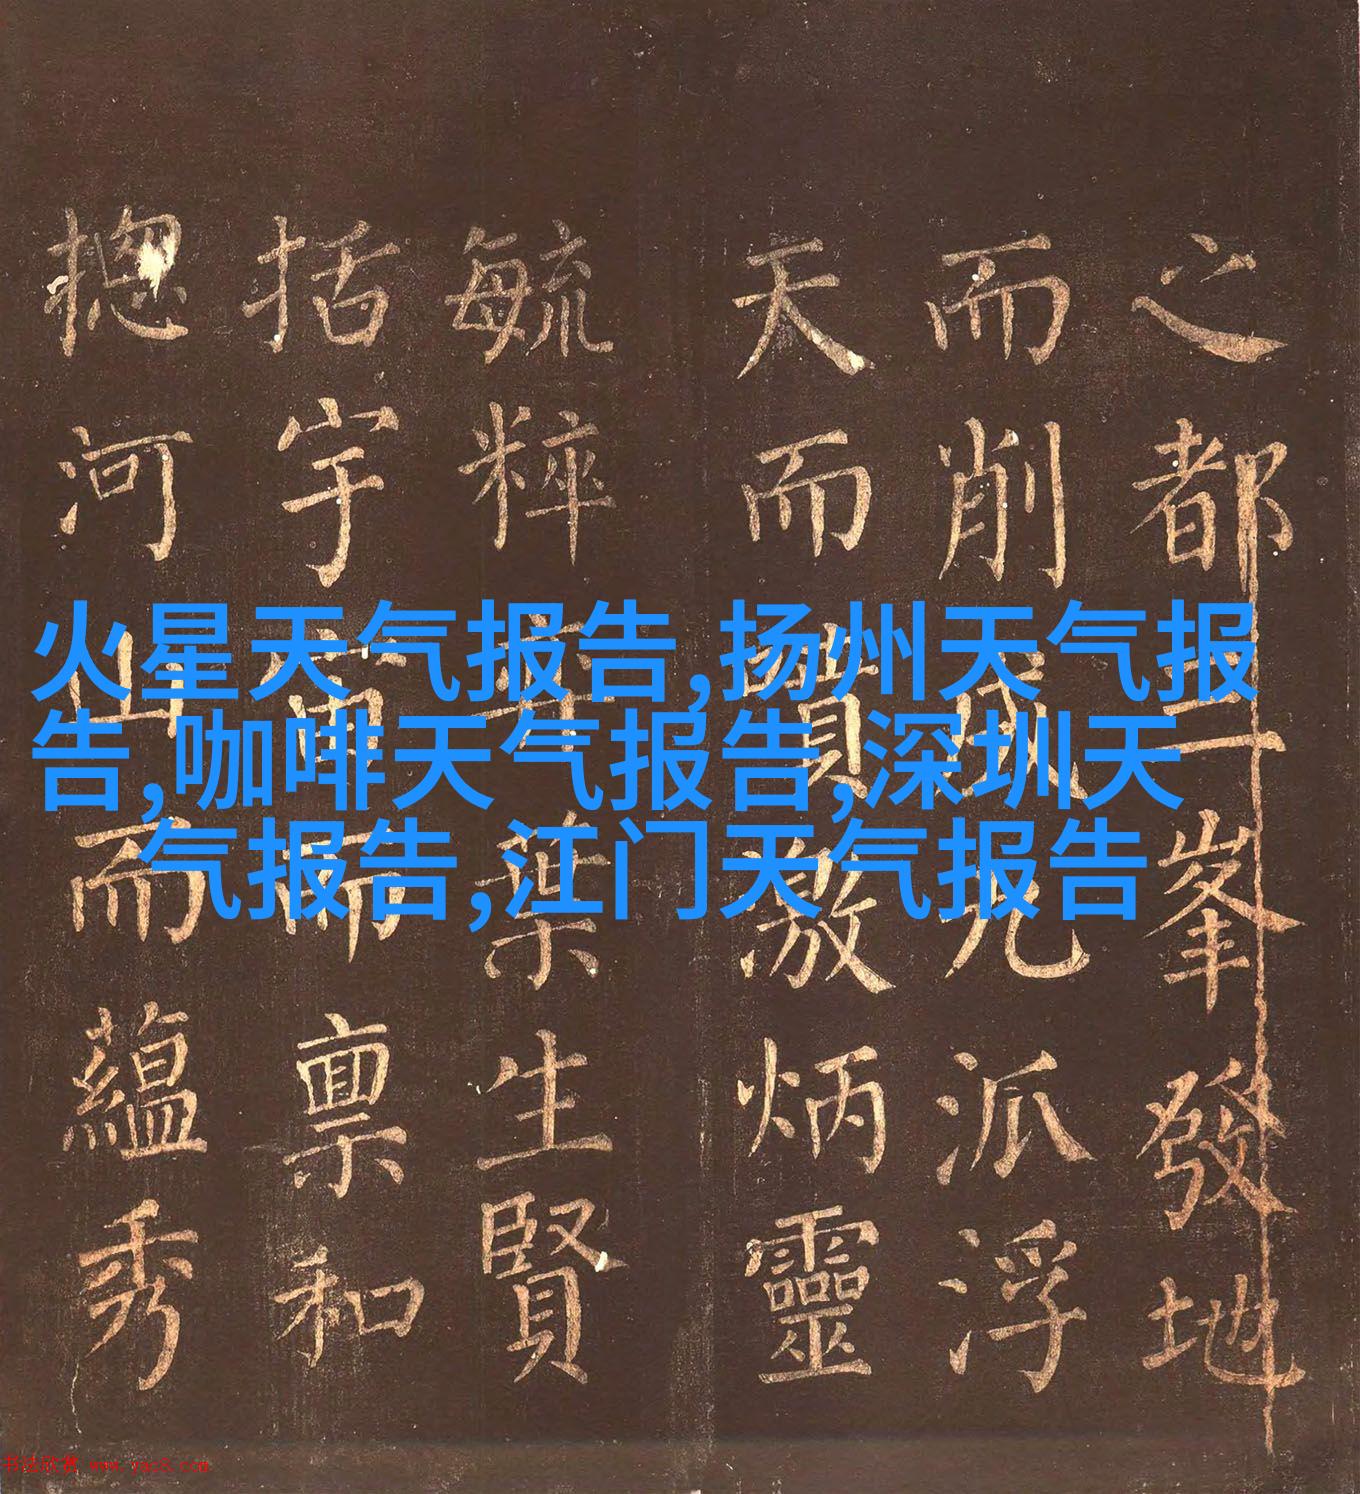 之都二峯發地
而削成九派浮
天而噴激炳靈
毓粹葉生賢
括宇宙而禀和
揔河山而蘊秀
火星天气报告,扬州天气报
告,咖啡天气报告,深圳天
气报告,江门天气报告
书法欣赏 www.yac8.com